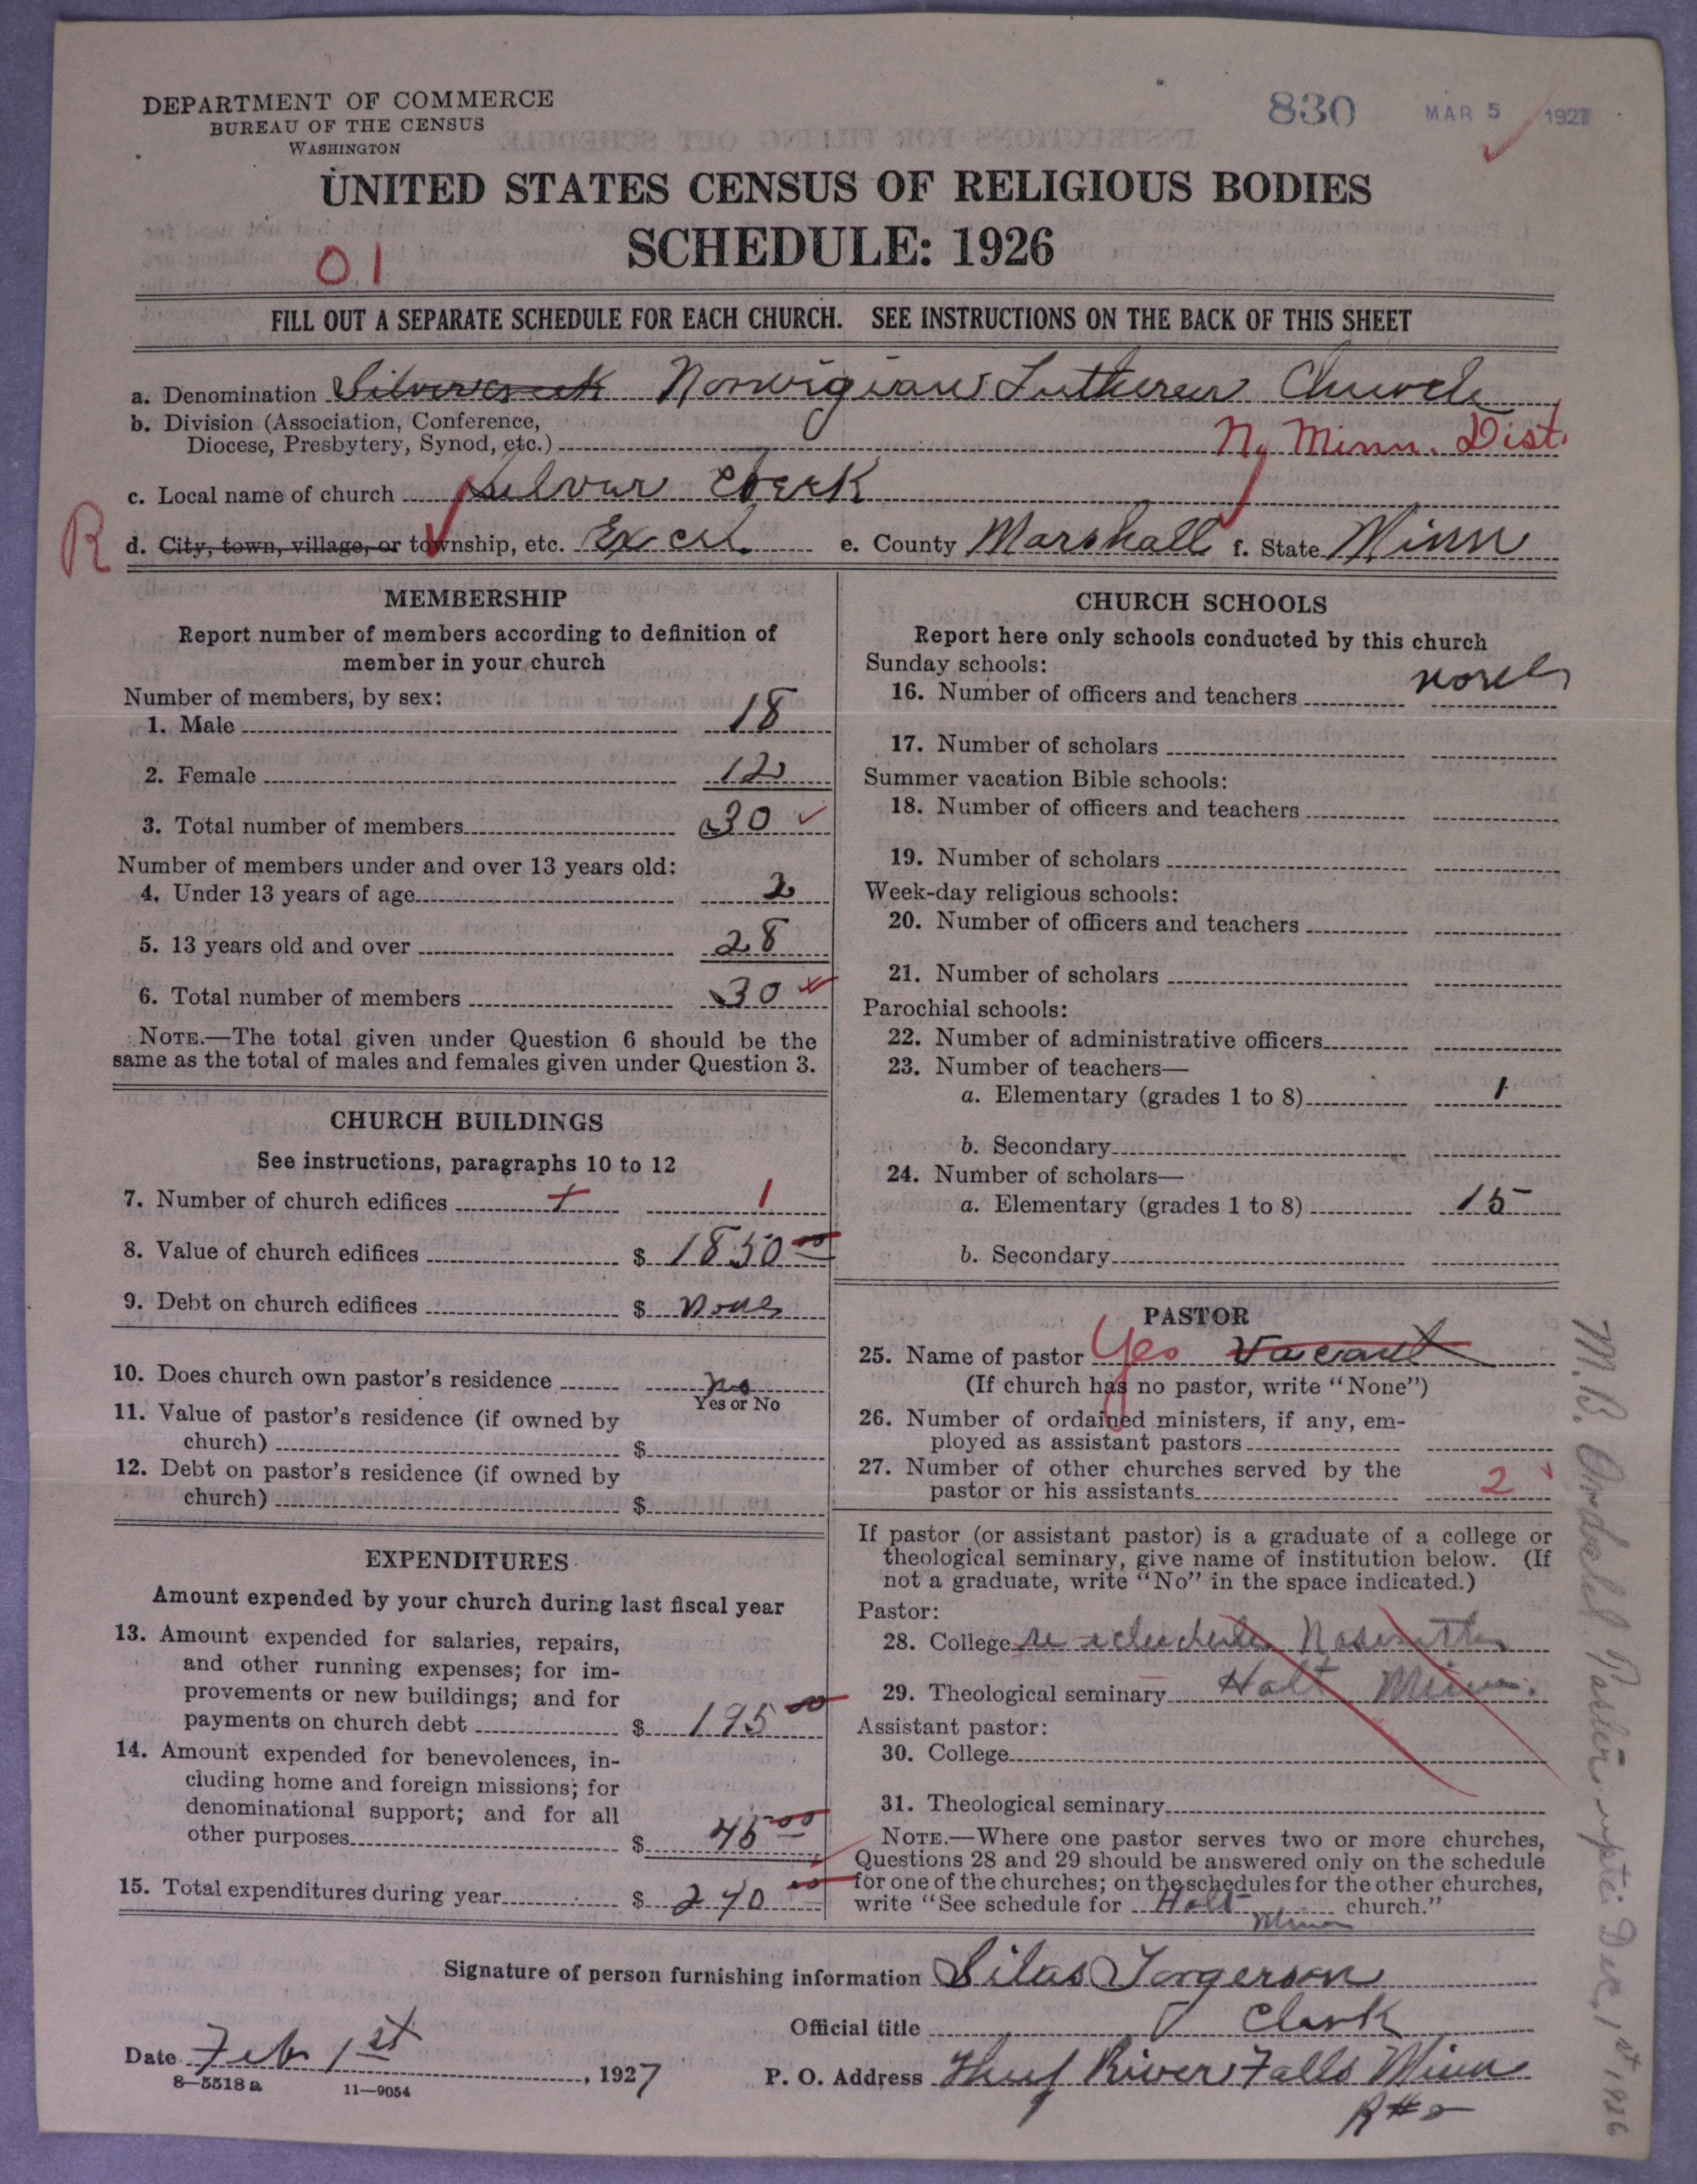 DEPARTMENT OF COMMERCE
BUREAU OF THE CENSUS
WASHINGTON
830 MAR 5 1927
UNITED STATES CENSUS OF RELIGIOUS BODIES
SCHEDULE: 1926
01
FILL OUT A SEPARATE SCHEDULE FOR EACH CHURCH. SEE INSTRUCTIONS ON THE BACK OF THIS SHEET
a. Denomination Silvercreek Norwigian Lutheren Church
b. Division (Association, Conference,
Diocese, Presbytery, Synod, etc.) N. Minn. Dist.
c. Local name of church Silvur Creek
R d. City, town, village, or township, etc. Excel e. County Marshall f. State Minn
MEMBERSHIP
Report number of members according to definition of
member in your church
Number of members, by sex:
1. Male 18
2. Female 12
3. Total number of members 30
Number of members under and over 13 years old:
4. Under 13 years of age 2
5. 13 years old and over 28
6. Total number of members 30
NOTE.—The total given under Question 6 should be the
same as the total of males and females given under Question 3.
CHURCH BUILDINGS
See instructions, paragraphs 10 to 12
7. Number of church edifices 1
8. Value of church edifices $ 1850 00
9. Debt on church edifices $ None
10. Does church own pastor's residence no
Yes or No
11. Value of pastor's residence (if owned by
church) $
12. Debt on pastor's residence (if owned by
church) $
EXPENDITURES
Amount expended by your church during last fiscal year
13. Amount expended for salaries, repairs,
and other running expenses; for im-
provements or new buildings; and for
payments on church debt $ 195 00
14. Amount expended for benevolences, in-
cluding home and foreign missions; for
denominational support; and for all
other purposes $ 45 00
15. Total expenditures during year $ 240 00
CHURCH SCHOOLS
Report here only schools conducted by this church
Sunday schools:
16. Number of officers and teachers none
17. Number of scholars
Summer vacation Bible schools:
18. Number of officers and teachers
19. Number of scholars
Week-day religious schools:
20. Number of officers and teachers
21. Number of scholars
Parochial schools:
22. Number of administrative officers
23. Number of teachers—
a. Elementary (grades 1 to 8) 1
b. Secondary
24. Number of scholars—
a. Elementary (grades 1 to 8) 15
b. Secondary
PASTOR
25. Name of pastor Yes Vacant
(If church has no pastor, write "None")
26. Number of ordained ministers, if any, em-
ployed as assistant pastors
27. Number of other churches served by the
pastor or his assistants 2
If pastor (or assistant pastor) is a graduate of a college or
theological seminary, give name of institution below. (If
not a graduate, write "No" in the space indicated.)
Pastor:
28. College
29. Theological seminary Holt Minn.
Assistant pastor:
30. College
31. Theological seminary
NOTE.—Where one pastor serves two or more churches,
Questions 28 and 29 should be answered only on the schedule
for one of the churches; on the schedules for the other churches,
write "See schedule for Holt church."
Minn
Signature of person furnishing information Silas Torgerson
Official title Clark
Date Feb 1st, 1927 P. O. Address Thief River Falls Minn
R#2
8—5518a 11—9054
M.B. Pastor, Dec. 1st 1926